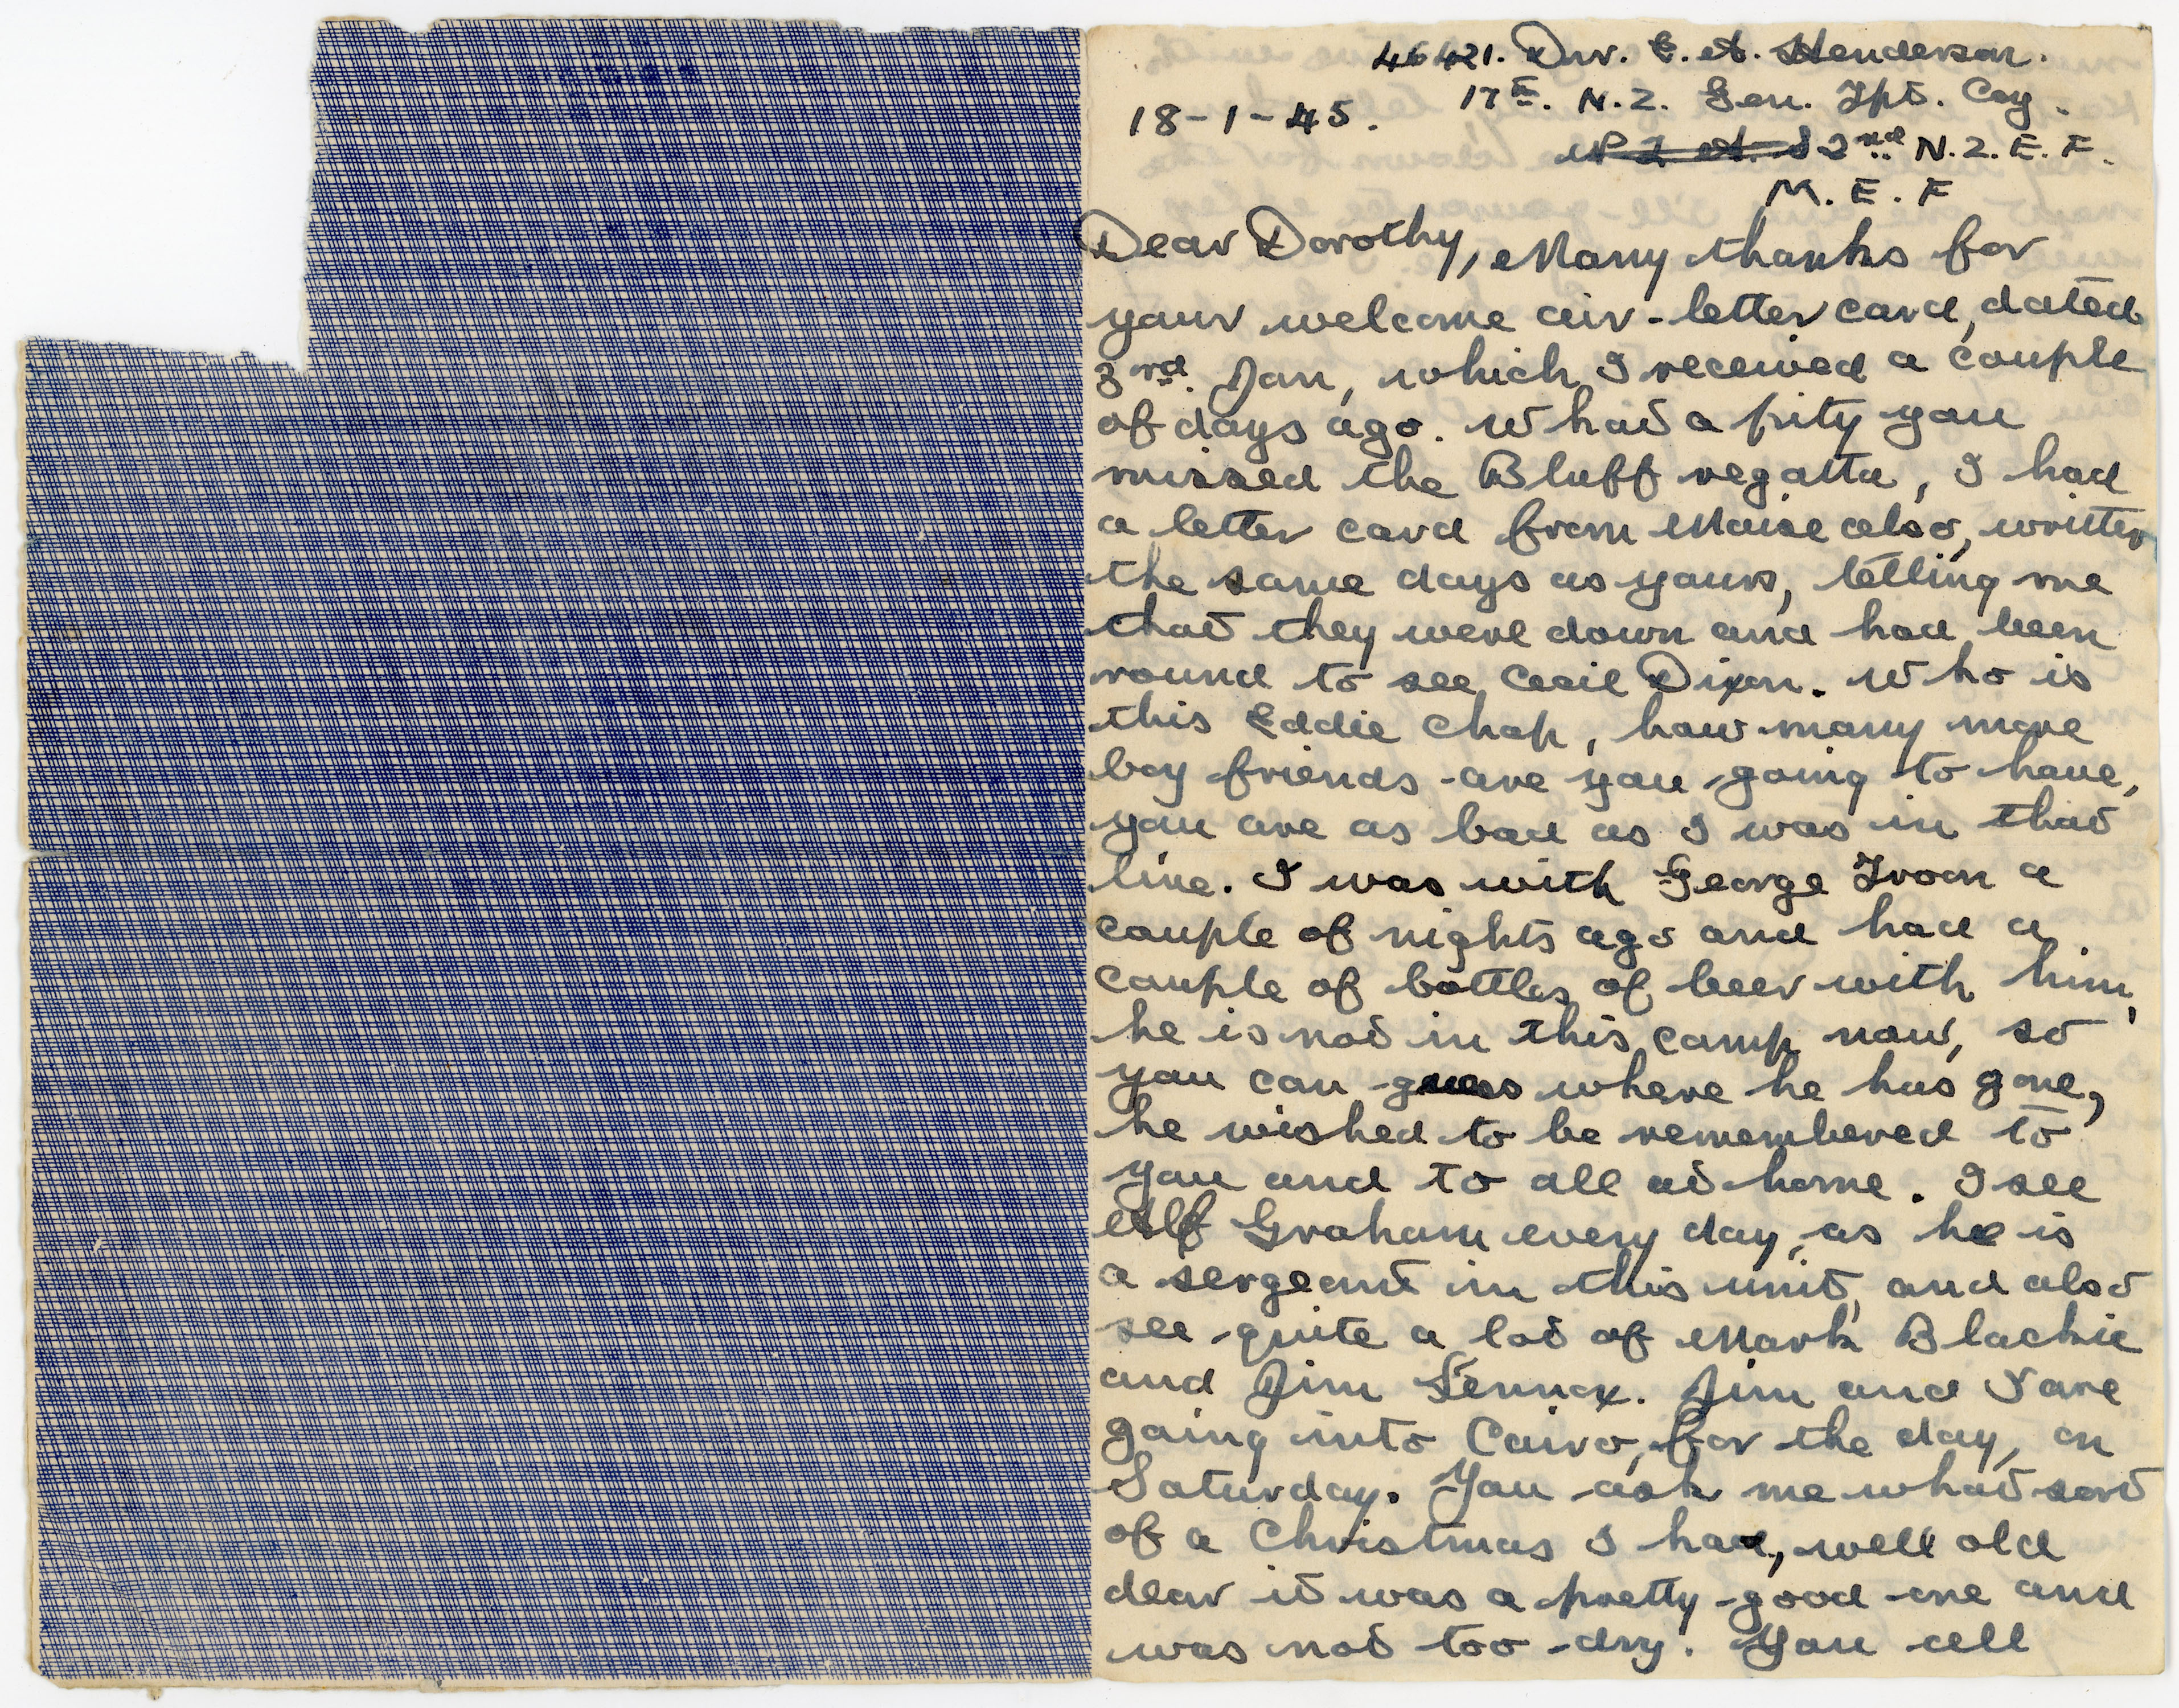 46421. Dvr. E. A. Henderson.
18-1-45. 17th. N.Z. Gen. Tpt. Coy.
2nd N.Z.E.F.
M.E.F
Dear Dorothy, Many thanks for
your welcome air-letter card, dated
3rd. Jan, which I received a couple
of days ago. What a pity you
missed the Bluff regatta, I had
a letter card from Maise also, written
the same days as yours, telling me
that they were down and had been
round to see Cecil Dixon. Who is
this Eddie chap, how many more
boy friends are you going to have,
you are as bad as I was in that
line. I was with George Troon a
couple of nights ago and had a
couple of bottles of beer with him,
he is not in this camp now, so
you can guess where he has gone,
he wished to be remembered to
you and to all at home. I see
Alf Graham every day, as he is
a sergeant in this unit, and also
see quite a lot of Mark Blackie
and Jim Lennox. Jim and I are
going into Cairo, for the day, on
Saturday. You ask me what sort
of a Christmas I had, well old
dear it was a pretty good one and
was not too dry. You all